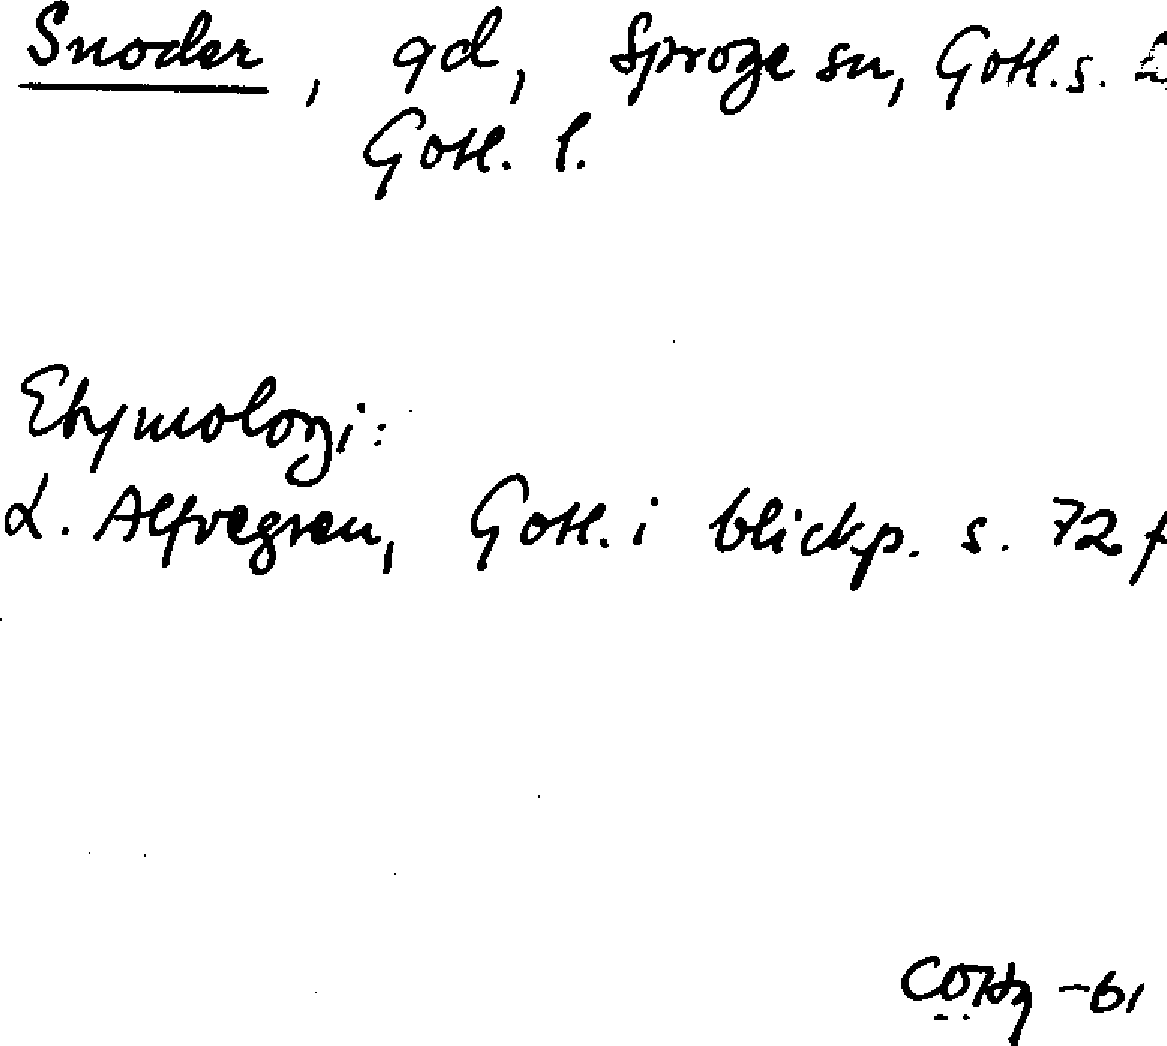 Snoder, gd, Sproge sn, Gotl. s.
Gotl. l.
Etymologi:
L. Alfvegren, Gotl. i blickp. s. 72 f
-61